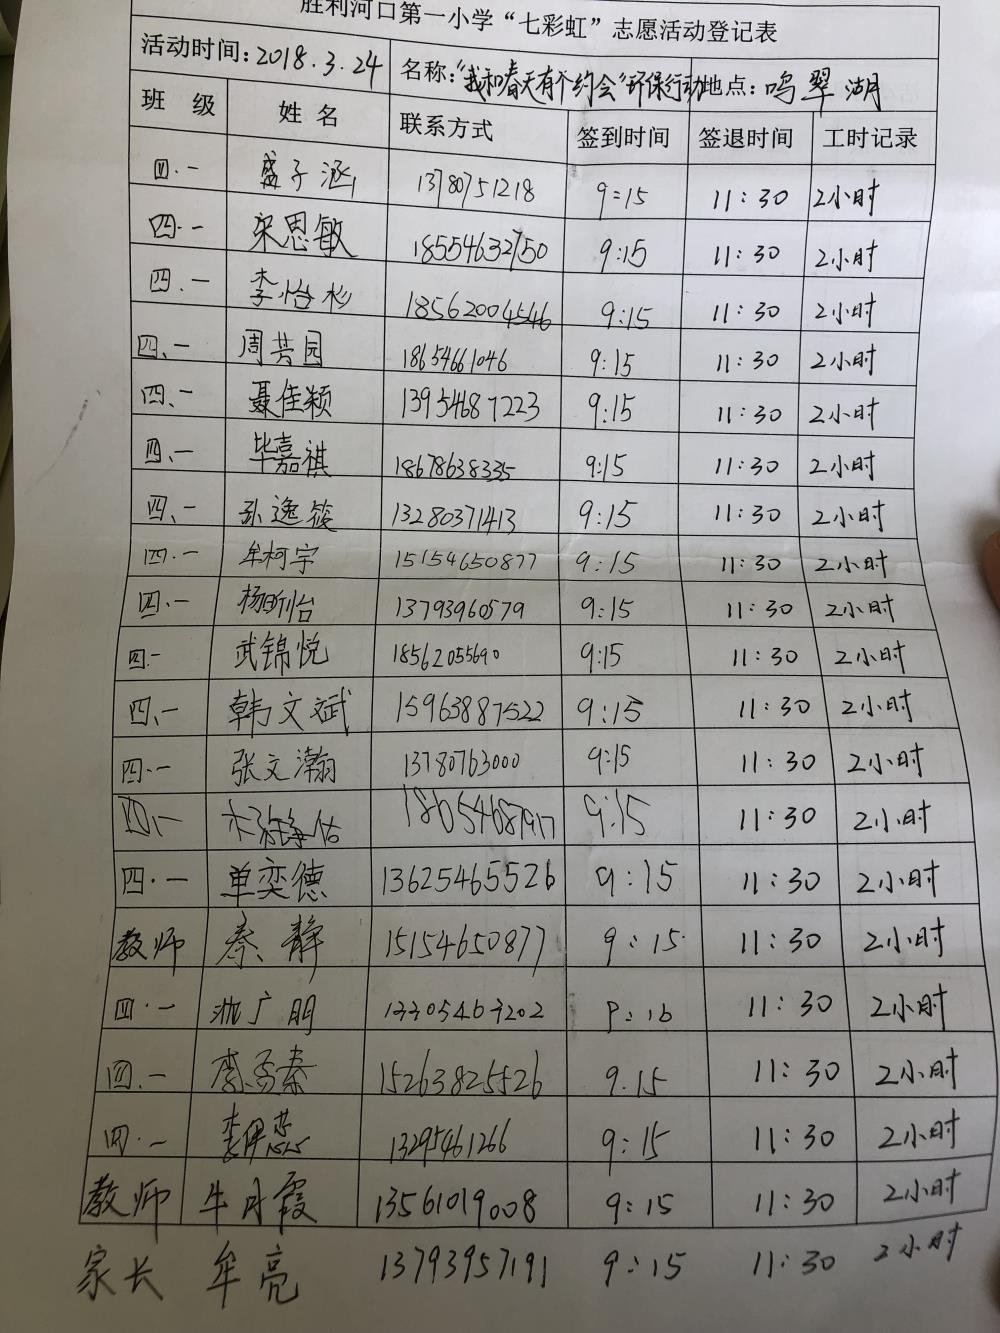 胜利河口第一小学“七彩虹”志愿活动登记表
活动时间：2018.3.24 名称：“我和春天有个约会”环保行动 地点：鸣翠湖
班 级 姓 名 联系方式 签到时间 签退时间 工时记录
四.一 盛子涵 13780751218 9:15 11:30 2小时
四.一 宋思敏 18554632750 9:15 11:30 2小时
四.一 李怡杉 18562004546 9:15 11:30 2小时
四、一 周芸园 18654661046 9:15 11:30 2小时
四、一 聂佳颖 13954687223 9:15 11:30 2小时
四、一 毕嘉祺 18678638335 9:15 11:30 2小时
四、一 孙逸筱 13280371413 9:15 11:30 2小时
四.一 牟柯宇 15154650877 9:15 11:30 2小时
四.一 杨昕怡 13793960579 9:15 11:30 2小时
四.一 武锦悦 18562055690 9:15 11:30 2小时
四、一 韩文斌 15963887522 9:15 11:30 2小时
四.一 张文瀚 13780763000 9:15 11:30 2小时
四、一 18654687917 9:15 11:30 2小时
四.一 单奕德 13625465526 9:15 11:30 2小时
教师 秦静 15154650877 9:15 11:30 2小时
四.一 广明 13305463202 11:30 2小时
四.一 李孟秦 15263825526 9.15 11:30 2小时
四.一 13295461266 9:15 11:30 2小时
教师 牛月霞 13561019008 9:15 11:30 2小时
家长 牟亮 13793957191 9:15 11:30 2小时